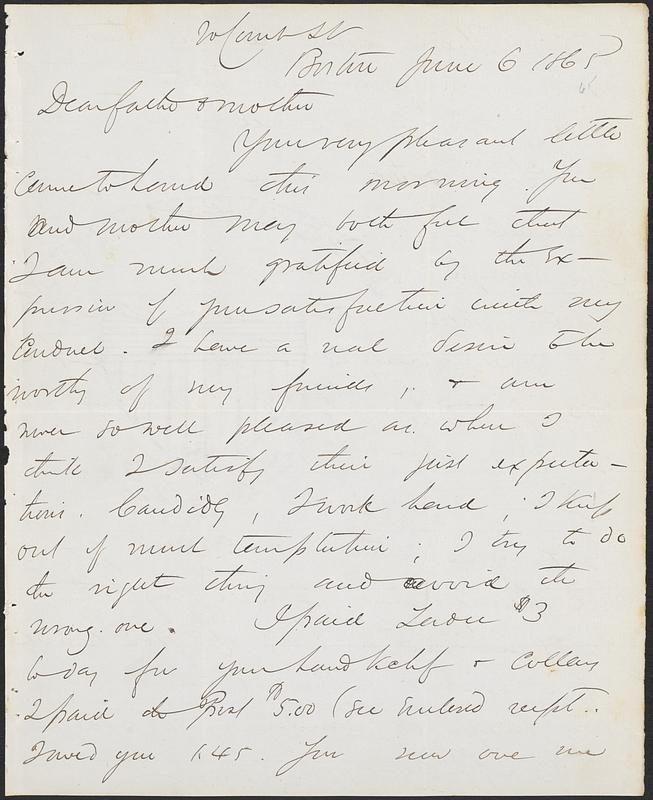 20 Comb St
Boston June 6 1865
65
Dear father & mother
Your very pleasant letter
came to hand this morning. You
and mother may both feel that
I am much gratified by the ex-
pression of your satisfaction with my
conduct. I have a real desire to be
worthy of my friends, & am
never so well pleased as when I
think I satisfy their just expecta-
tions. Candidly, I work hard; I keep
out of much temptation; I try to do
the right thing and avoid the
wrong one. I paid $3
to day for your handkchf & collars
I paid Prof $5.00 (see enclosed rect..
I owed you 1.45. You now owe me